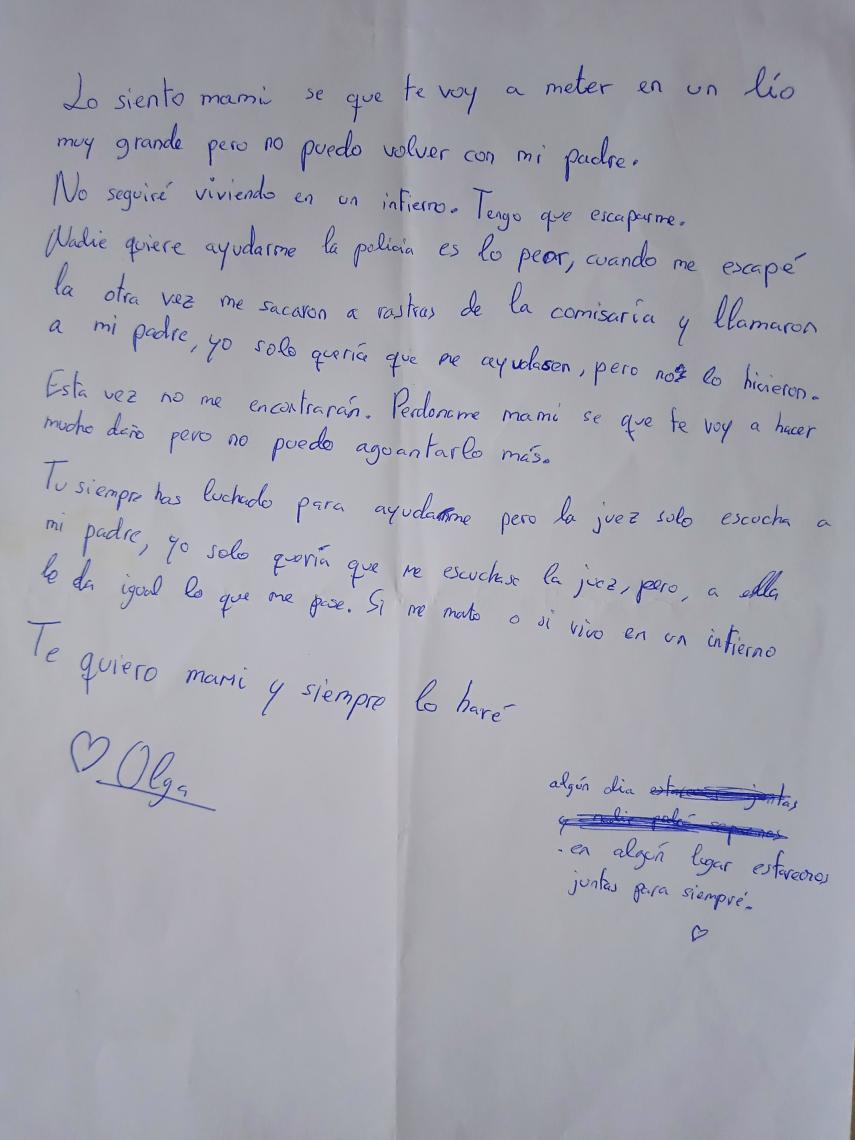 Lo siento mami se que te voy a meter en un lío
muy grande pero no puedo volver con mi padre.
No seguiré viviendo en un infierno. Tengo que escaparme.
Nadie quiere ayudarme la policia es lo peor, cuando me escapé
la otra vez me sacaron a rastras de la comisaría y llamaron
a mi padre, yo solo quería que me ayudasen, pero no lo hicieron.
Esta vez no me encontrarán. Perdoname mami se que te voy a hacer
mucho daño pero no puedo aguantarlo más.
Tu siempre has luchado para ayudarme pero la juez solo escucha a
mi padre, yo solo quería que me escuchase la juez, pero, a ella
le da igual lo que me pase. Si me mato o si vivo en un infierno
Te quiero mami y siempre lo haré
♡ Olga
algún dia estaremos juntas
y nadie podrá
. en algún lugar estaremos
juntas para siempré.
♡